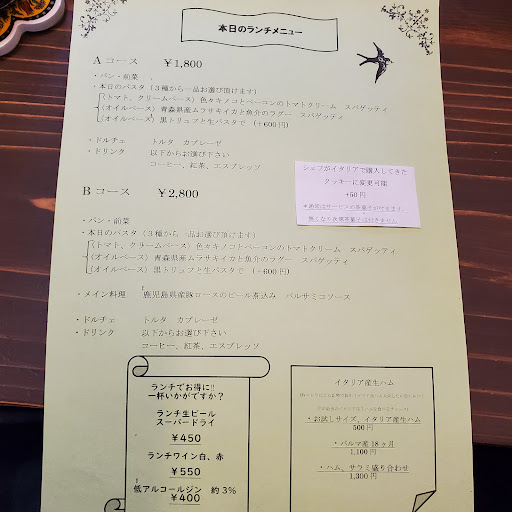 本日のランチメニュー
Aコース ¥1,800
・パン・前菜
・本日のパスタ(3種から一品お選び頂けます)
(トマト、クリームベース) 色々キノコとベーコンのトマトクリーム スパゲッティ
(オイルベース) 青森県産ムラサキイカと魚介のラグー スパゲッティ
(オイルベース) 黒トリュフと生パスタで (+600円)
・ドルチェ トルタ カプレーゼ
・ドリンク 以下からお選び下さい
コーヒー、紅茶、エスプレッソ
シェフがイタリアで購入してきた
クッキーに変更可能
+50円
Bコース ¥2,800
・パン・前菜
・本日のパスタ(3種から一品お選び頂けます)
(トマト、クリームベース) 色々キノコとベーコンのトマトクリーム スパゲッティ
(オイルベース) 青森県産ムラサキイカと魚介のラグー スパゲッティ
(オイルベース) 黒トリュフと生パスタで (+600円)
・メイン料理 鹿児島県産豚ロースのビール煮込み バルサミコソース
・ドルチェ トルタ カプレーゼ
・ドリンク 以下からお選び下さい
コーヒー、紅茶、エスプレッソ
ランチでお得に!!
一杯いかがですか?
ランチ生ビール
スーパードライ
¥450
ランチワイン白、赤
¥550
低アルコールジン 約3%
¥400
イタリア産生ハム
・お試しサイズ、イタリア産生ハム
500円
・パルマ産18ヶ月
1,100円
・ハム、サラミ盛り合わせ
1,300円